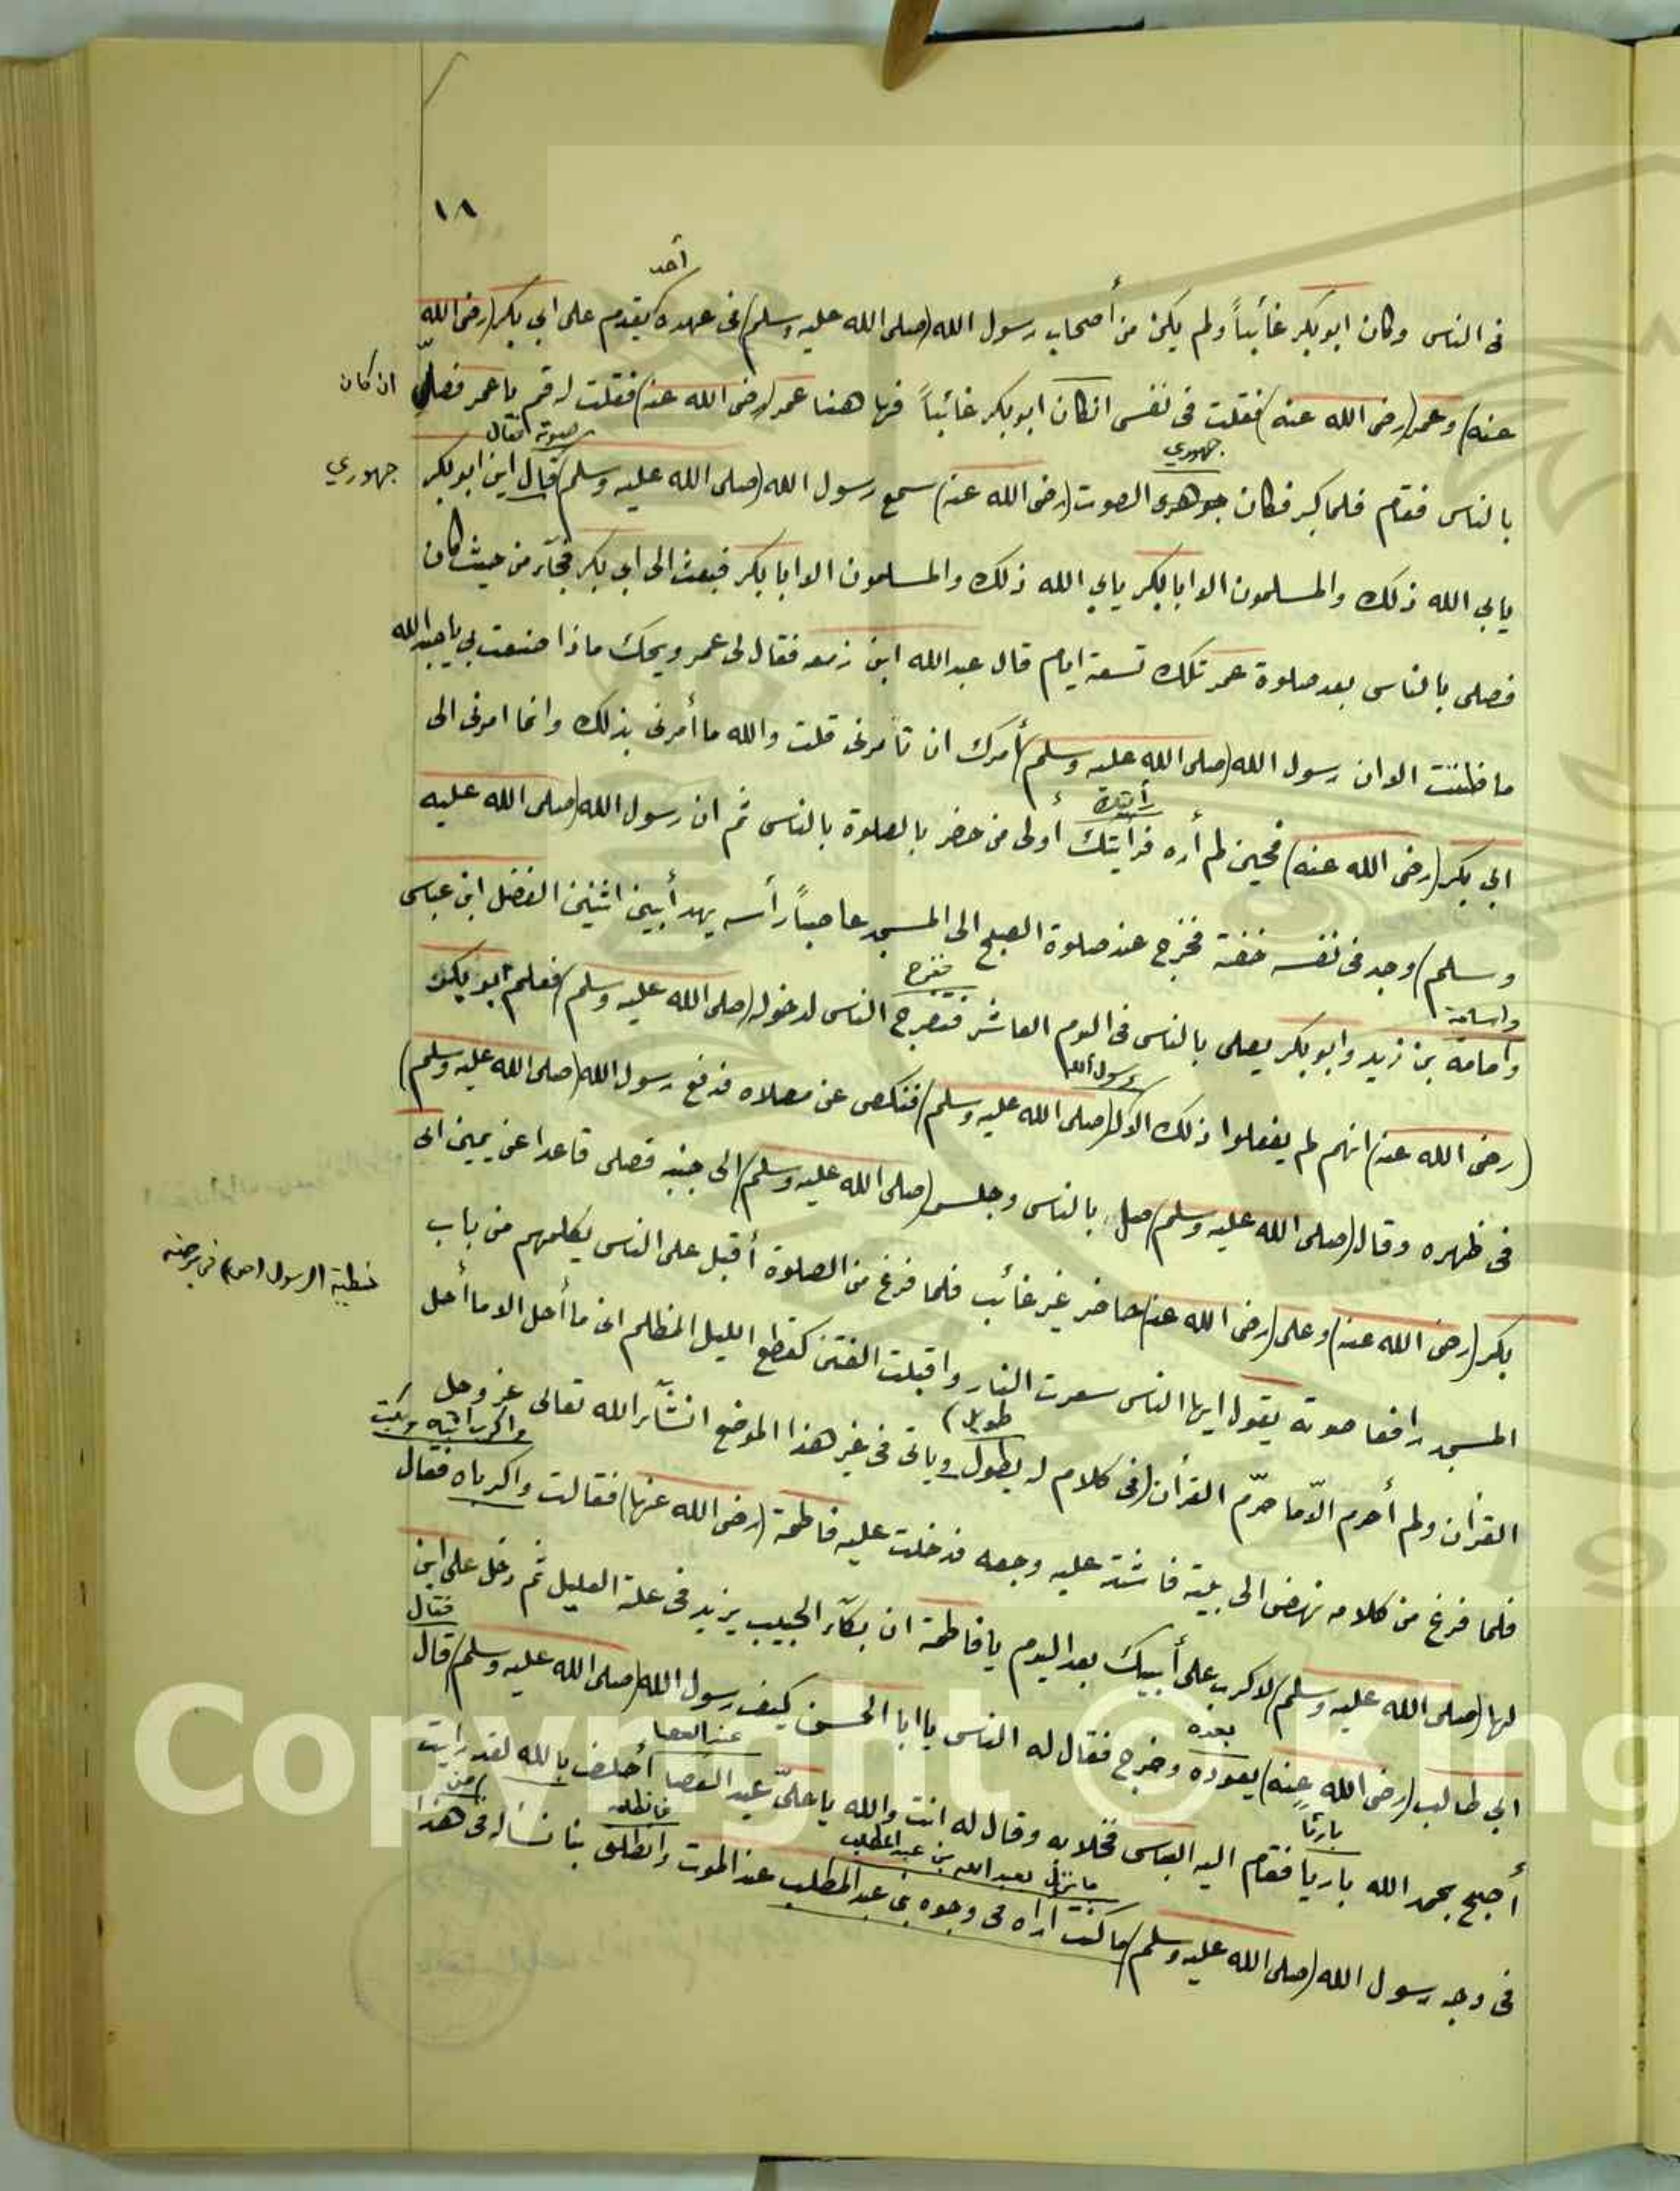 ١٨
أحد
فى الناس وكان ابو بكر غائباً ولم يكن من أصحاب رسول الله (صلى الله عليه وسلم) فى عهده يتقدم على ابي بكر (رضى الله
عنه) وعمر (رضى الله عنه) فقلت فى نفسى انكان ابو بكر غائباً فها هنا عمر (رضى الله عنه) فقلت له قم يا عمر فصلّي
ان كان
جهوري
صوته فقال
بالناس فقام فلما كبر فكان جوهرى الصوت (رضى الله عنه) سمع رسول الله (صلى الله عليه وسلم) قال اين ابو بكر
جهوري
يابى الله ذلك والمسلمون الا ابا بكر يابي الله ذلك والمسلمون الا ابا بكر فبعث الى ابي بكر فجآء من حيث كان
فصلى بالناس بعد صلوة عمر تلك تسعة ايام قال عبدالله ابن زمعه فقال لى عمر ويحك ماذا صنعت بي يا عبدالله
ما ظننت الا ان رسول الله (صلى الله عليه وسلم) أمرك ان تأمرنى قلت والله ما أمرنى بذلك وانما امرنى الى
رأيتك
ابي بكر (رضى الله عنه) فحين لم أره فرأيتك أولى من حضر بالصلوة بالناس ثم ان رسول الله (صلى الله عليه
وسلم) وجد فى نفسه خفة فخرج عند صلوة الصبح الى المسجد عاصباً رأسه يهدأ بين اثنين الفضل ابن عباس
واسامة
فتفرج
وامامة بن زيد وابو بكر يصلى بالناس فى اليوم العاشر فتصرح الناس لدخوله (صلى الله عليه وسلم) فعلم ابو بكر
رسول الله
(رضى الله عنه) انهم لم يفعلوا ذلك الا له (صلى الله عليه وسلم) فنكص عن مصلاه فدفع رسول الله (صلى الله عليه وسلم)
فى ظهره وقال (صلى الله عليه وسلم) صل بالناس وجلس (صلى الله عليه وسلم) الى جنبه فصلى قاعدا عن يمين ابى
بكر (رضى الله عنه) وعلى (رضى الله عنه) حاضر غير غائب فلما فرغ من الصلوة أقبل على الناس يكلمهم من باب
خطبة الرسول (ص) فى مرضه
المسجد رافعا صوته يقول ايها الناس سعرت النار واقبلت الفتن كقطع الليل المظلم انى ما أحل الا ما أحل
طويل)
القرأن ولم أحرم الّا ما حرّم القرأن (فى كلام له يطول وياتى فى غير هذا الموضع انشآء الله تعالى عز وجل
واكرب ابتاه وبكت
فلما فرغ من كلامه نهض الى بيته فاشتد عليه وجعه فدخلت عليه فاطمة (رضى الله عنها) فقالت واكرباه فقال
لها (صلى الله عليه وسلم) لا كرب على أبيك بعد اليوم يا فاطمة ان بكآء الحبيب يزيد فى علة العليل ثم دخل على ابن
فقال
بعده
ابي طالب (رضى الله عنه) يعوده وخرج فقال له الناس يا ابا الحسن كيف رسول الله (صلى الله عليه وسلم) قال
عبد العصا
بارئا
أصبح بحمد الله باريا فقام اليه العباس فخلا به وقال له انت والله يا على عبد العصا أحلف بالله لقد رايت
فانطلق
من
ما ينزل بعبد الله بن عبد المطلب
فى وجه رسول الله (صلى الله عليه وسلم) ما كنت اراه فى وجوه بنى عبد المطلب عند الموت وانطلق بنا نسأله فى هذا
Copyright © King